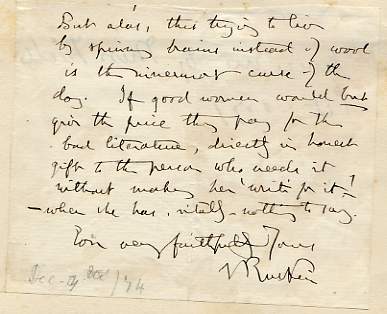 But alas, this trying to live
by spinning brains instead of wool
is the innermost curse of the
day. If good women would but
give the price they pay for the
bad literature, directly in honest
gift to the person who needs it
without making her 'write for it'!
—when she has, vitally, nothing to say.
Ever very faithfully Yours
J Ruskin
Dec